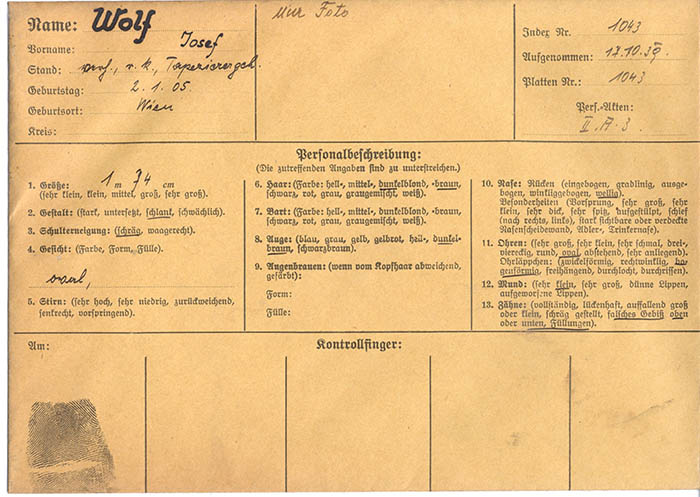 Name: Wolf
Vorname: Josef
Stand: verh., r. k., Tapezierergeh.
Geburtstag: 2. 1. 05.
Geburtsort: Wien
Kreis:
Nur Foto
Index Nr. 1043
Aufgenommen: 17.10.39
Platten Nr.: 1043
Pers.-Akten:
II. A. 3.
Personalbeschreibung:
(Die zutreffenden Angaben sind zu unterstreichen.)
1. Größe: 1 m 74 cm
(sehr klein, klein, mittel, groß, sehr groß).
2. Gestalt: (stark, untersetzt, schlank, schwächlich).
3. Schulterneigung: (schräg, waagerecht).
4. Gesicht: (Farbe, Form, Fülle).
oval,
5. Stirn: (sehr hoch, sehr niedrig, zurückweichend,
senkrecht, vorspringend).
6. Haar: (Farbe: hell-, mittel-, dunkelblond, -braun,
schwarz, rot, grau, graugemischt, weiß).
7. Bart: (Farbe: hell-, mittel-, dunkelblond, -braun,
schwarz, rot, grau, graugemischt, weiß).
8. Auge: (blau, grau, gelb, gelbrot, hell-, dunkel-
braun, schwarzbraun).
9. Augenbrauen: (wenn vom Kopfhaar abweichend,
gefärbt):
Form:
Fülle:
10. Nase: Rücken (eingebogen, gradlinig, ausge-
bogen, winkliggebogen, wellig).
Besonderheiten (Vorsprung, sehr groß, sehr
klein, sehr dick, sehr spitz, aufgestülpt, schief
(nach rechts, links), stark sichtbare oder verdeckte
Nasenscheidewand, Adler-, Trinkernase).
11. Ohren: (sehr groß, sehr klein, sehr schmal, drei-
viereckig, rund, oval, abstehend, sehr anliegend).
Ohrläppchen: (zwickelförmig, rechtwinklig, bo-
genförmig, freihängend, durchlocht, durchrissen).
12. Mund: (sehr klein, sehr groß, dünne Lippen,
aufgeworfene Lippen).
13. Zähne: (vollständig, lückenhaft, auffallend groß
oder klein, schräg gestellt, falsches Gebiß oben
oder unten, Füllungen).
Am:
Kontrollfinger: